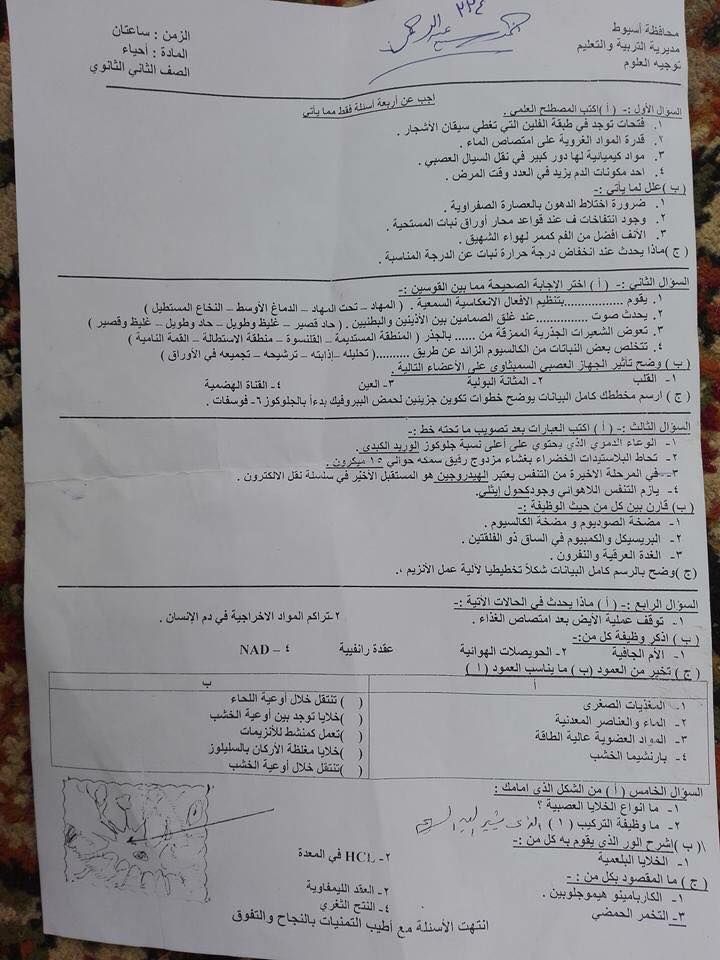 ٢٢٤
محافظة أسيوط
مديرية التربية والتعليم
توجيه العلوم
الزمن : ساعتان
المادة : أحياء
الصف الثاني الثانوي
اجب عن أربعة أسئلة فقط مما يأتي
السؤال الأول :- ( أ )اكتب المصطلح العلمي .
١. فتحات توجد في طبقة الفلين التي تغطي سيقان الأشجار .
٢. قدرة المواد الغروية على امتصاص الماء .
٣. مواد كيميائية لها دور كبير في نقل السيال العصبي .
٤. احد مكونات الدم يزيد في العدد وقت المرض .
( ب )علل لما يأتي :-
١. ضرورة اختلاط الدهون بالعصارة الصفراوية .
٢. وجود انتفاخات ف عند قواعد محار أوراق نبات المستحية .
٣. الأنف افضل من الفم كممر لهواء الشهيق .
( ج )ماذا يحدث عند انخفاض درجة حرارة نبات عن الدرجة المناسبة .
السؤال الثاني :- ( أ ) اختر الإجابة الصحيحة مما بين القوسين :-
١. يقوم ...............بتنظيم الافعال الانعكاسية السمعية . ( المهاد – تحت المهاد – الدماغ الأوسط – النخاع المستطيل )
٢. يحدث صوت .............عند غلق الصمامين بين الأذينين والبطنيين . ( حاد قصير – غليظ وطويل – حاد وطويل – غليظ وقصير )
٣. تعوض الشعيرات الجذرية الممزقة من ...... بالجذر ( المنطقة المستديمة – القلنسوة – منطقة الاستطالة – القمة النامية )
٤. تتخلص بعض النباتات من الكالسيوم الزائد عن طريق ..........( تحليله –إذابته – ترشيحه – تجميعه في الأوراق )
( ب ) وضح تأثير الجهاز العصبي السمبثاوي على الأعضاء التالية .
١- القلب ٢- المثانة البولية ٣- العين ٤- القناة الهضمية
( ج ) ارسم مخططك كامل البيانات يوضح خطوات تكوين جزيئين لحمض البيروفيك بدءاً بالجلوكوز ٦- فوسفات .
السؤال الثالث :- ( أ ) اكتب العبارات بعد تصويب ما تحته خط :-
١- الوعاء الدموي الذي يحتوي على أعلى نسبة جلوكوز الوريد الكبدي .
٢- تحاط البلاستيدات الخضراء بغشاء مزدوج رقيق سمكه حوالي ١٥ ميكرون .
٣- في المرحلة الاخيرة من التنفس يعتبر الهيدروجين هو المستقبل الأخير في سلسلة نقل الالكترون .
٤- يلزم التنفس اللاهوائي وجودكحول إيثلي.
( ب) قارن بين كل من حيث الوظيفة :-
١- مضخة الصوديوم و مضخة الكالسيوم .
٢- البريسيكل والكمبيوم في الساق ذو الفلقتين .
٣- الغدة العرقية والنفرون .
(ج )وضح بالرسم كامل البيانات شكلاً تخطيطيا لألية عمل الأنزيم .،
السؤال الرابع :- ( أ ) ماذا يحدث في الحالات الآتية :-
١- توقف عملية الأيض بعد امتصاص الغذاء . ٢-تراكم المواد الاخراجية في دم الإنسان .
( ب ) اذكر وظيفة كل من:-
١- الأم الجافية ٢- الحويصلات الهوائية عقدة رانفيية ٤ – NAD
( ج ) تخير من العمود (ب ) ما يناسب العمود ( أ )
أ ب
١- المغذيات الصغرى ( ) تنتقل خلال أوعية اللحاء
٢- الماء والعناصر المعدنية ( )خلايا توجد بين أوعية الخشب
٣- المواد العضوية عالية الطاقة ( )تعمل كمنشط للأنزيمات
٤- بارنشيما الخشب ( )خلايا مغلظة الأركان بالسليلوز
( )تنتقل خلال أوعية الخشب
السؤال الخامس ( أ ) من الشكل الذي امامك :
١- ما انواع الخلايا العصبية ؟
٢- ما وظيفة التركيب ( ١ ) الذى يشير اليه السهم
( ب )إشرح الور الذي يقوم به كل من :-
١- الخلايا البلعمية ٢- HCL في المعدة
( ج ) ما المقصود بكل من : -
١- الكاربامينو هيموجلوبين . ٢- العقد الليمفاوية
٣- التخمر الحمضي ٤- النتح الثغري
انتهت الأسئلة مع أطيب التمنيات بالنجاح والتفوق